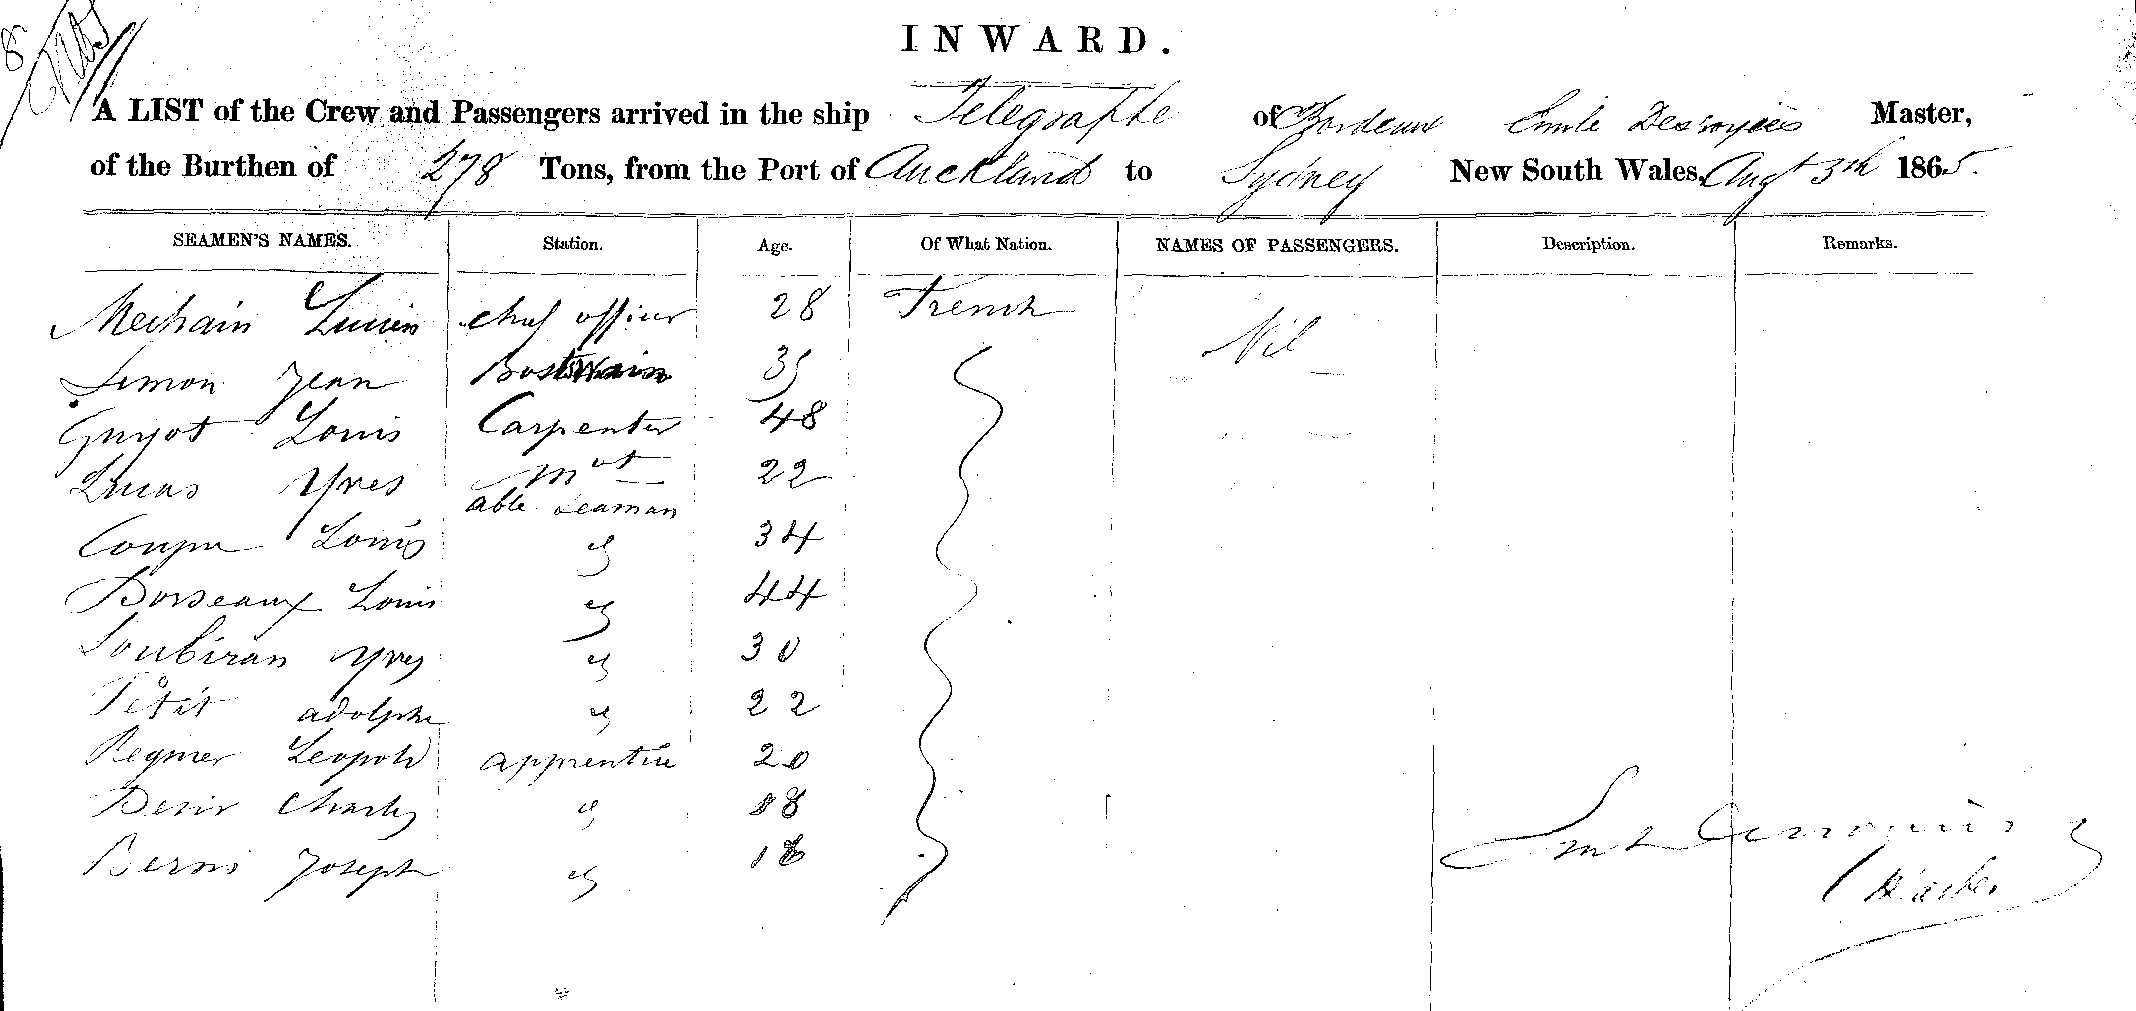 INWARD.
A LIST of the Crew and Passengers arrived in the ship Telegraphe of Bordeaux Emile Master,
of the Burthen of 278 Tons, from the Port of Auckland to Sydney New South Wales, Augt 3th 1865.
SEAMEN'S NAMES. Station. Age. Of What Nation. NAMES OF PASSENGERS. Description. Remarks.
Mechain Lucien chief officer 28 French Nil
Simon Jean 35
Guyot Louis Carpenter 48
Lucas Yves 22
able seaman
Louis " 34
Louis " 44
Soubiran Yves " 30
Petit adolphe " 22
Regnier Leopold apprentice 20
Desir Charles " 18
Joseph " 18
Master